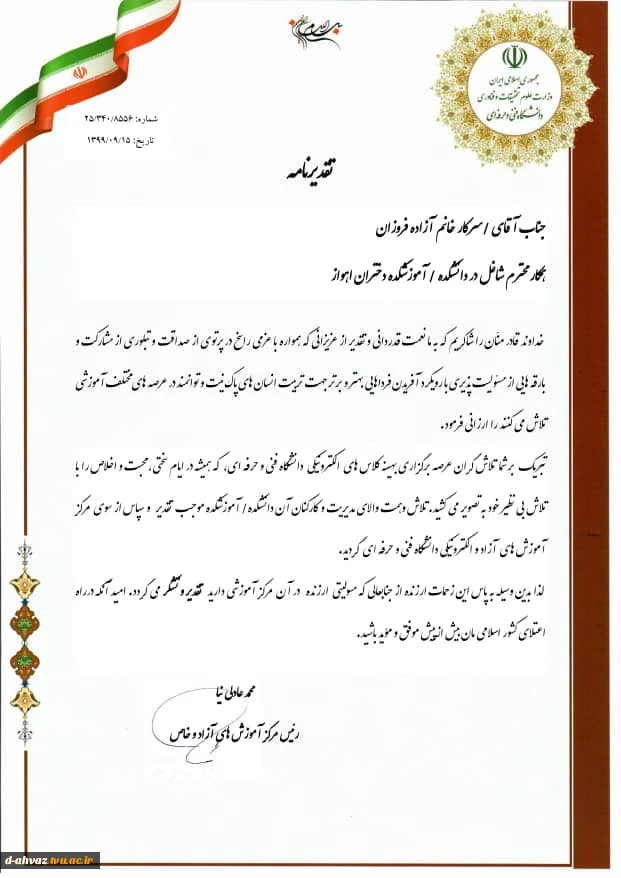 جمهوری اسلامی ایران
وزارت علوم تحقیقات و فناوری
دانشگاه فنی و حرفه ای
شماره: ۲۵/۳۴۰/۸۵۵۶
تاریخ: ۱۳۹۹/۰۹/۱۵
تقدیرنامه
جناب آقای / سرکار خانم آزاده فروزان
همکار محترم شاغل در دانشکده / آموزشکده دختران اهواز
خداوند قادر منّان را شاکریم که به ما نعمت قدردانی و تقدیر از عزیزانی که همواره با عزمی راسخ در پرتوی از صداقت و تبلوری از مشارکت و
بارقه هایی از مسئولیت پذیری با رویکرد آفریدن فرداهایی بهتر و برتر جهت تربیت انسان های پاک نیت و توانمند در عرصه های مختلف آموزشی
تلاش می کنند را ارزانی فرمود.
تبریک بر شما تلاش گران عرصه برگزاری بهینه کلاس های الکترونیکی دانشگاه فنی و حرفه ای، که همیشه در ایام سختی، محبت و اخلاص را با
تلاش بی نظیر خود به تصویر می کشید. تلاش و همت والای مدیریت و کارکنان آن دانشکده/ آموزشکده موجب تقدیر و سپاس از سوی مرکز
آموزش های آزاد و الکترونیکی دانشگاه فنی و حرفه ای گردید.
لذا بدین وسیله به پاس این زحمات ارزنده از جنابعالی که مسولیتی ارزنده در آن مرکز آموزشی دارید تقدیر و تشکر می گردد. امید آنکه در راه
اعتلای کشور اسلامی مان بیش از پیش موفق و مؤید باشید.
محمد عادلی نیا
رئیس مرکز آموزش های آزاد و خاص
d-ahvaz.tvu.ac.ir